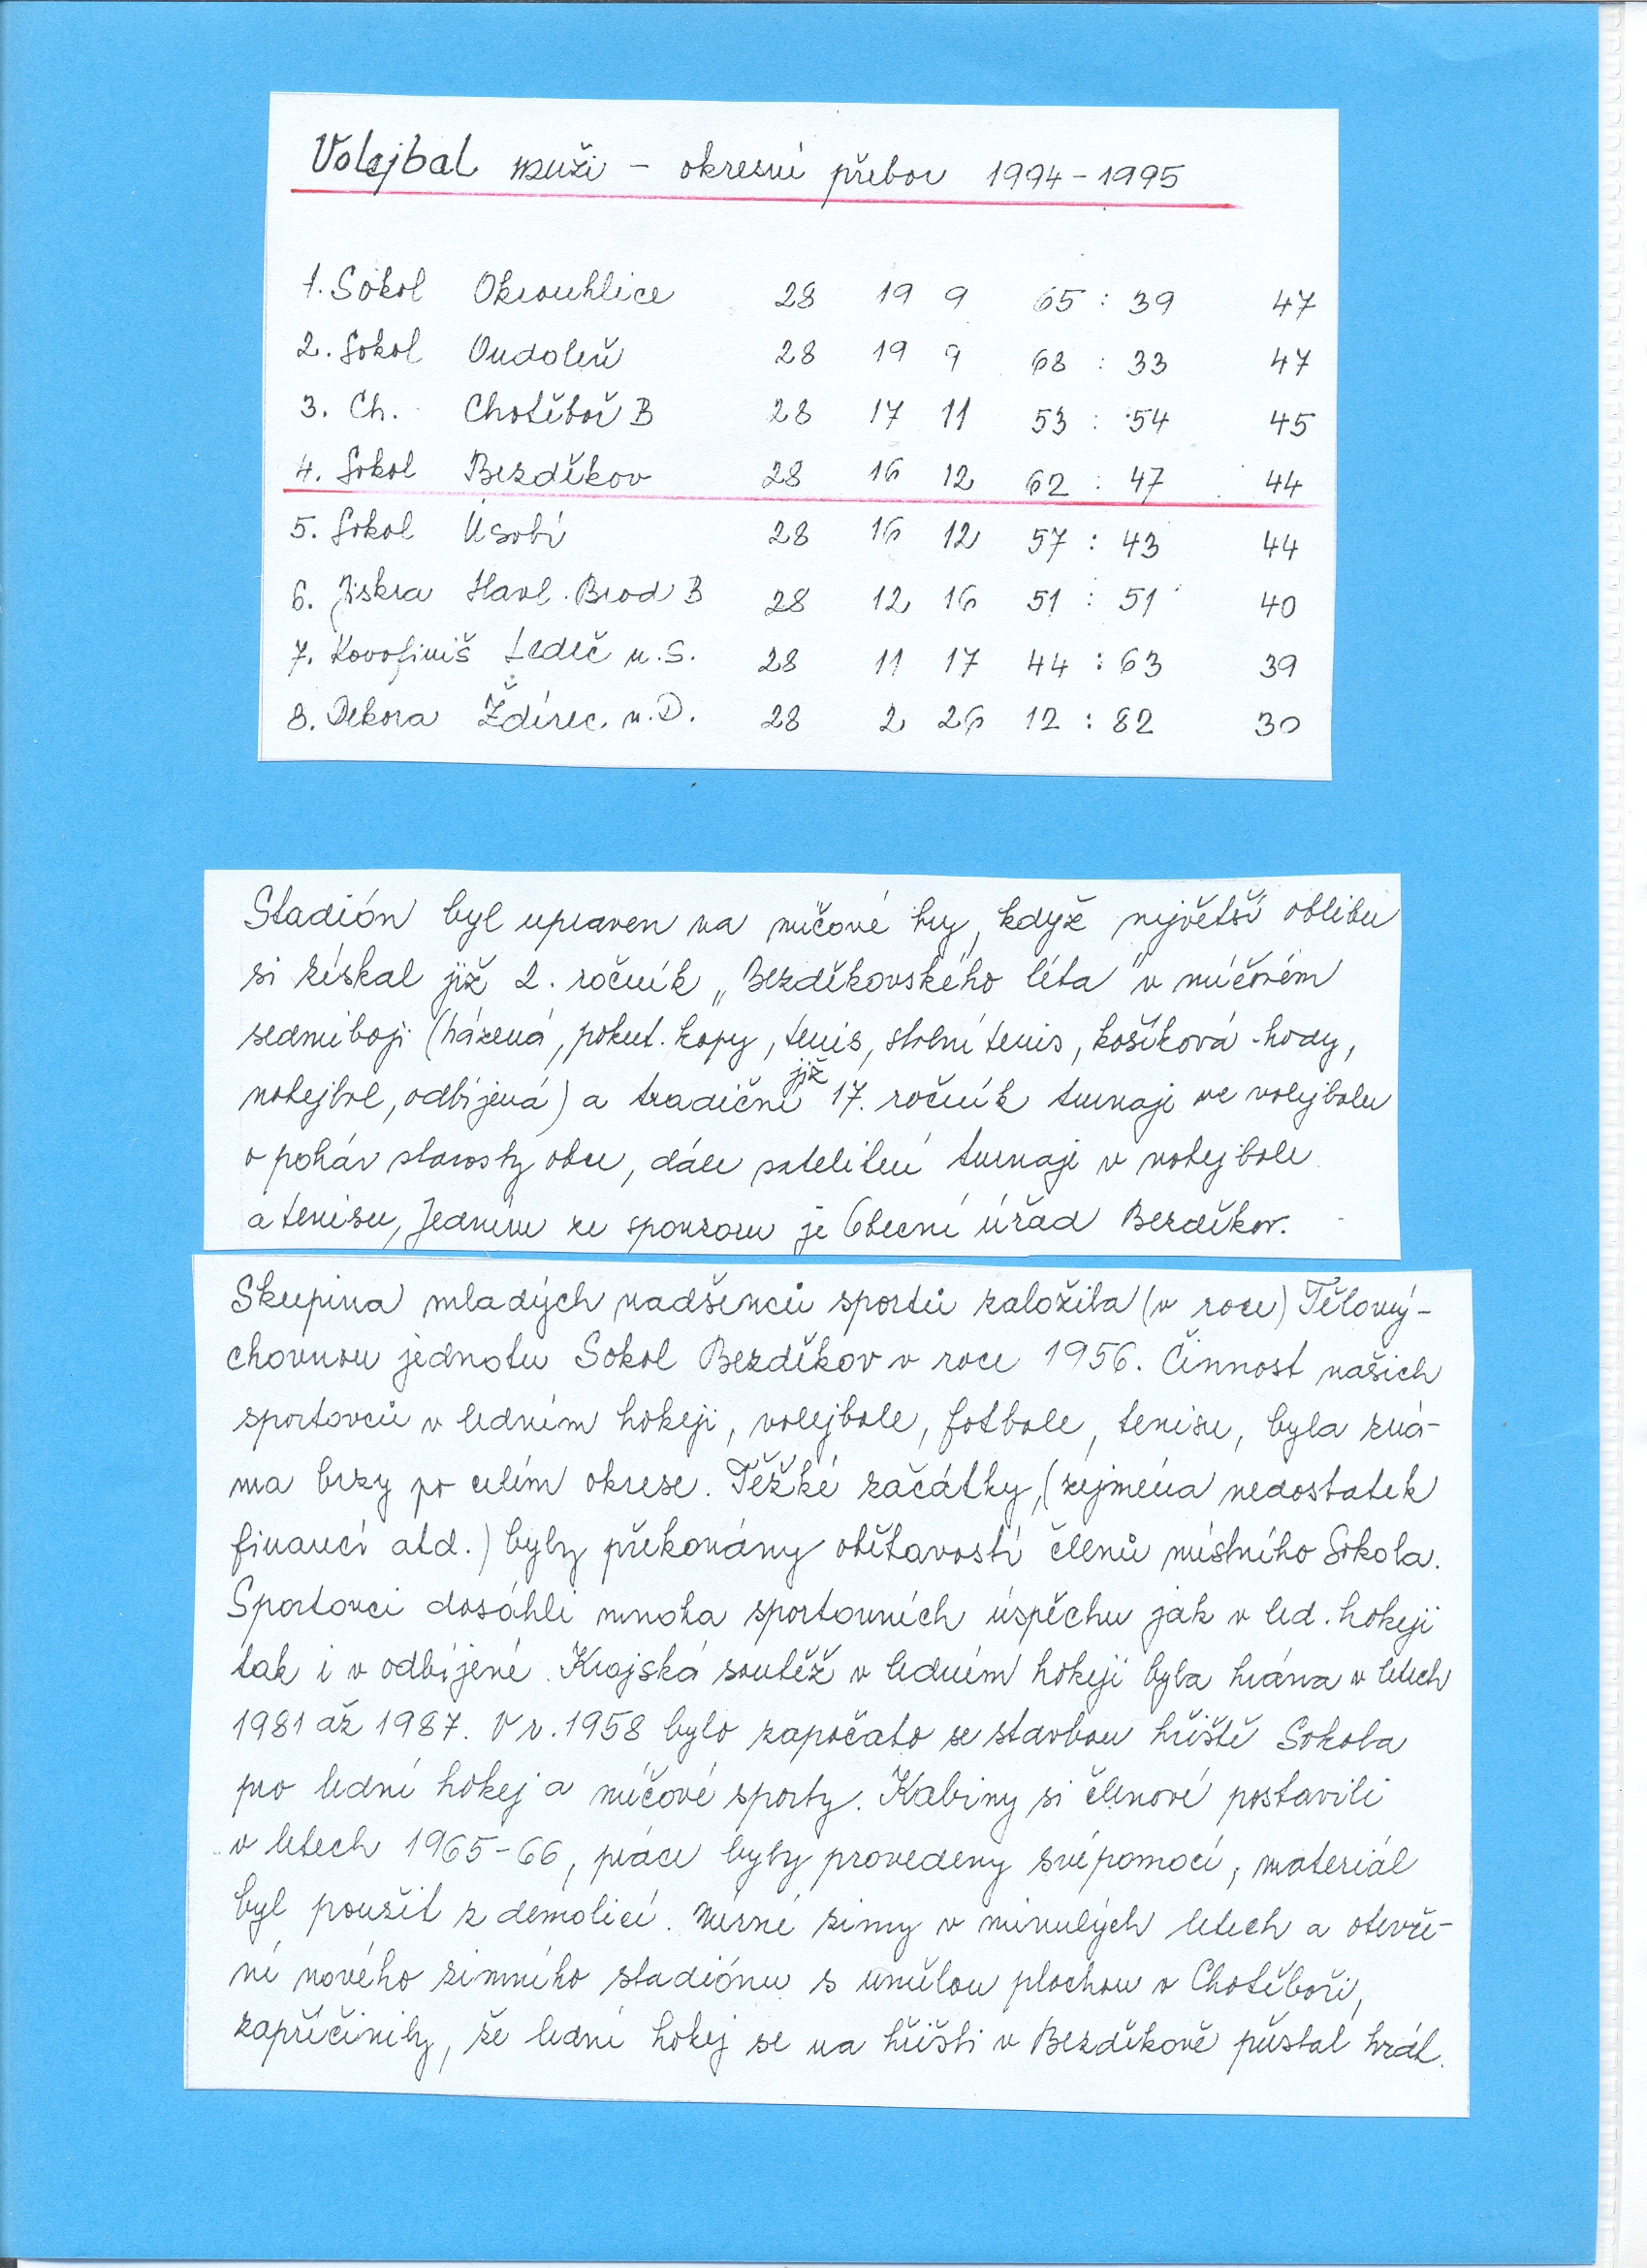 Volejbal muži - okresní přebor 1994-1995
1. Sokol Okrouhlice 28 19 9 65 : 39 47
2. Sokol Oudoleň 28 19 9 68 : 33 47
3. Ch. Chotěboř B 28 17 11 53 : 54 45
4. Sokol Bezděkov 28 16 12 62 : 47 44
5. Sokol Úsobí 28 16 12 57 : 43 44
6. Jiskra Havl. Brod B 28 12 16 51 : 51 40
7. Kovofiniš Ledeč n. S. 28 11 17 44 : 63 39
8. Dekora Ždírec n. D. 28 2 26 12 : 82 30
Stadión byl upraven na míčové hry, když největší oblibu
si získal již 2. ročník „Bezděkovského léta" v míčovém
sedmiboji (házená, pokut. kopy, tenis, stolní tenis, košíková - hody,
nohejbal, odbíjená) a tradiční již 17. ročník turnaje ve volejbalu
o pohár starosty obce, dále satelitní turnaje v nohejbale
a tenisu, Jedním ze sponzorů je Obecní úřad Bezděkov.
Skupina mladých nadšenců sportů založila (v roce) Tělový-
chovnou jednotu Sokol Bezděkov v roce 1956. Činnost našich
sportovců v ledním hokeji, volejbale, fotbale, tenisu, byla zná-
ma brzy po celém okrese. Těžké začátky, (zejména nedostatek
financí atd.) byly překonány obětavostí členů místního Sokola.
Sportovci dosáhli mnoha sportovních úspěchu jak v led. hokeji
tak i v odbíjené. Krajská soutěž v ledním hokeji byla hrána v letech
1981 až 1987. V r. 1958 bylo započato se stavbou hřiště Sokola
pro lední hokej a míčové sporty. Kabiny si členové postavili
v letech 1965-66, práce byly provedeny svépomocí, materiál
byl použit z demolicí. Mírné zimy v minulých letech a otevře-
ní nového zimního stadiónu s umělou plochou v Chotěboři,
zapříčinily, že lední hokej se na hřišti v Bezděkově přestal hrát.